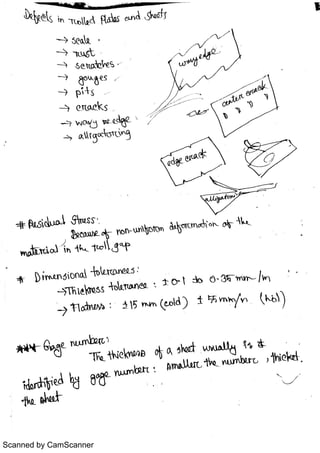 Defects in rolled plates and sheets
→ scale.
→ rust
→ scratches.
→ gouges
→ pits
→ cracks
→ wavy edge
→ alligatoring
wavy edge
center crack
edge crack
alligatoring
# Residual stress:
Because of non-uniform deformation of the
material in the roll gap
* Dimensional tolerances:
→ Thickness tolerance : ± 0.1 to 0.35 mm/m
→ Flatness : ± 15 mm (cold) ± 55 mm/m (hot)
Gage number:
The thickness of a sheet usually is
identified by gage number: smaller the number, thicker
the sheet
Scanned by CamScanner